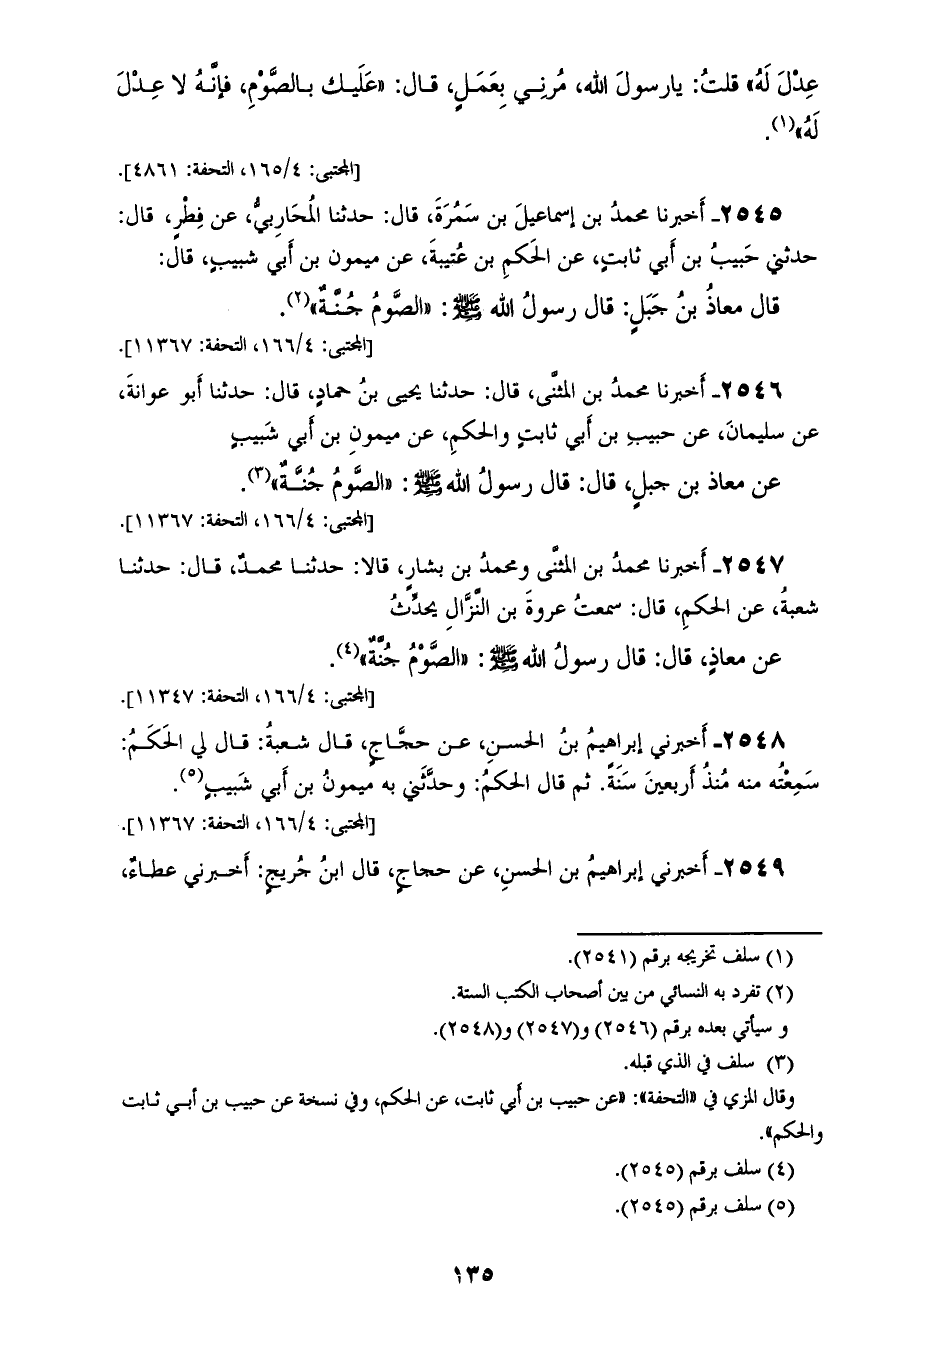 عِدْلَ لَهُ» قلتُ: يارسولَ الله، مُرنِـي بِعَمَـلٍ، قـال: «عَلَيـك بـالصَّوْمِ، فإنَّـهُ لا عِـدْلَ
لَهُ»(١).
[المجتبى: ١٦٥/٤، التحفة: ٤٨٦١].
٢٥٤٥ـ أَخبرنا محمدُ بن إسماعيلَ بن سَمُرَةَ، قال: حدثنا المُحَارِبيُّ، عن فِطْرٍ، قال:
حدثني حَبيبُ بن أَبي ثابتٍ، عن الحَكمِ بن عُتيبةَ، عن ميمون بن أَبي شبيبٍ، قال:
قال معاذُ بنُ جَبَلٍ: قال رسولُ الله ﷺ: «الصَّومُ جُنَّـةٌ»(٢).
[المجتبى: ١٦٦/٤، التحفة: ١١٣٦٧].
٢٥٤٦ـ أَخبرنا محمدُ بن المثنَّى، قال: حدثنا يحيى بنُ حمادٍ، قال: حدثنا أَبو عوانةَ،
عن سليمانَ، عن حبيبِ بن أَبي ثابتٍ والحكمِ، عن ميمونِ بن أَبي شَبيبٍ
عن معاذ بن جبلٍ، قال: قال رسولُ الله ﷺ: «الصَّومُ جُنَّـةٌ»(٣).
[المجتبى: ١٦٦/٤، التحفة: ١١٣٦٧].
٢٥٤٧ـ أَخبرنا محمدُ بن المثنَّى ومحمدُ بن بشارٍ، قالا: حدثنـا محمـدٌ، قـال: حدثنـا
شعبةُ، عن الحكمِ، قال: سمعتُ عروةَ بن النَّزَّالِ يحدِّثُ
عن معاذٍ، قال: قال رسولُ الله ﷺ: «الصَّوْمُ جُنَّةٌ»(٤).
[المجتبى: ١٦٦/٤، التحفة: ١١٣٤٧].
٢٥٤٨ـ أَخبرني إبراهيمُ بنُ الحسنِ، عـن حجَّـاجٍ، قـال شـعبةُ: قـال لي الحَكَـمُ:
سَمِعْتُه منه مُنذُ أَربعينَ سَنَةً. ثم قال الحكمُ: وحدَّثَني به ميمونُ بن أَبي شَبيبٍ(٥).
[المجتبى: ١٦٦/٤، التحفة: ١١٣٦٧].
٢٥٤٩ـ أَخبرني إبراهيمُ بن الحسنِ، عن حجاجٍ، قال ابنُ جُريجٍ: أَخـبرني عطـاءٌ،
(١) سلف تخريجه برقم (٢٥٤١).
(٢) تفرد به النسائي من بين أصحاب الكتب الستة.
و سيأتي بعده برقم (٢٥٤٦) و(٢٥٤٧) و(٢٥٤٨).
(٣) سلف في الذي قبله.
وقال المزي في «التحفة»: «عن حبيب بن أَبي ثابت، عن الحكم، وفي نسخة عن حبيب بن أبـي ثـابت
والحكم».
(٤) سلف برقم (٢٥٤٥).
(٥) سلف برقم (٢٥٤٥).
١٣٥